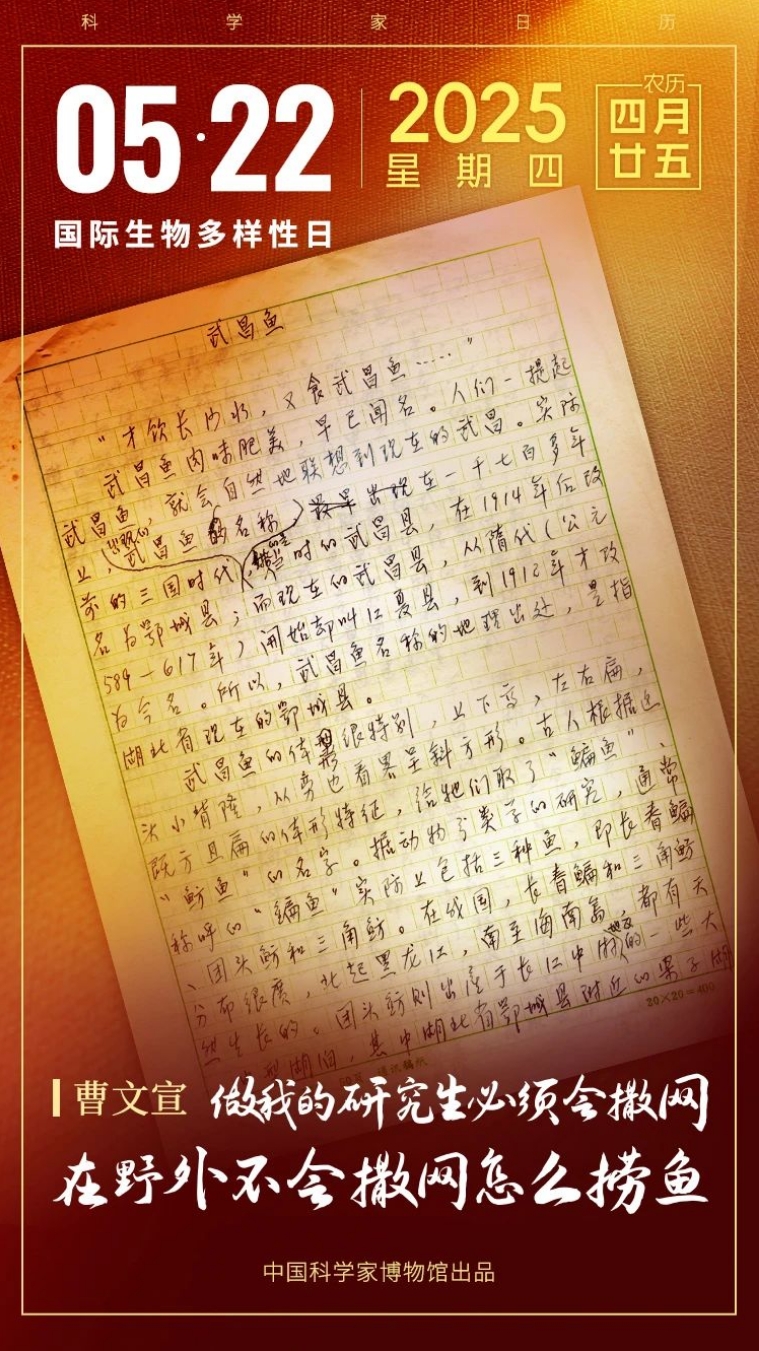 科学家日历
05·22
2025
星期四
农历
四月
廿五
国际生物多样性日
武昌鱼
“才饮长沙水，又食武昌鱼……”
武昌鱼肉味肥美，早已闻名。人们一提起
武昌鱼，就会自然地联想到现在的武昌。实际
上，武昌鱼的名称 最早出现在一千七百多年
前的三国时代，当时的武昌县，在1914年后改
名为鄂城县；而现在的武昌县，从隋代（公元
589—617年）开始却叫江夏县，到1912年才改
为今名。所以，武昌鱼名称的地理出处，是指
湖北省现在的鄂城县。
武昌鱼的体形很特别，上下高，左右扁，
头小背隆，从旁边看略呈斜方形。古人根据这
既方且扁的体形特征，给牠们取了“鳊鱼”、
“鲂鱼”的名字。据动物分类学的研究，通常
称呼的“鳊鱼”实际上包括三种鱼，即长春鳊
、团头鲂和三角鲂。在我国，长春鳊和三角鲂
分布很广，北起黑龙江，南至海南岛，都有天
然生长的。团头鲂则出产于长江中游的一些大
型湖泊，其中湖北省鄂城县附近的梁子湖
20×20=400
曹文宣 做我的研究生必须会撒网
在野外不会撒网怎么捞鱼
中国科学家博物馆出品